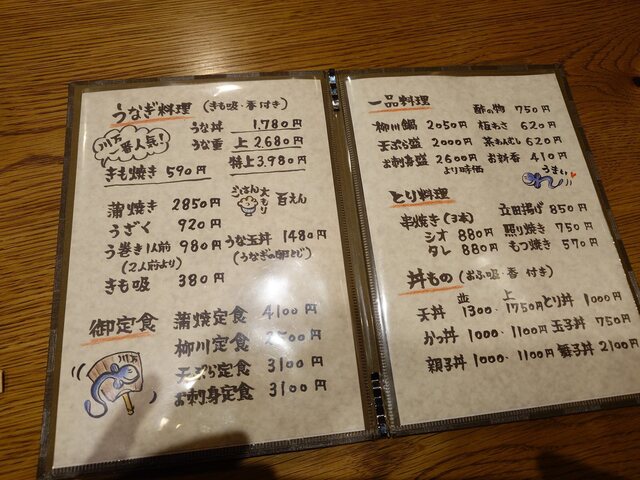 うなぎ料理 (きも吸・香付き)
うな丼 1,780円
うな重 上 2,680円
特上 3,980円
一番人気!
きも焼き 590円
ごはん大もり 百えん
蒲焼き 2850円
うざく 920円
う巻き1人前 980円
(2人前より)
きも吸 380円
うな玉丼 1480円
(うなぎの卵とじ)
御定食
蒲焼定食 4100円
柳川定食 500円
天ぷら定食 3100円
お刺身定食 3100円
一品料理
柳川鍋 2050円
天ぷら盛 2000円
お刺身盛 2600円
より時価
酢の物 750円
板わさ 620円
茶わんむし 620円
お新香 410円
うまい
とり料理
串焼き(3本)
シオ 880円
タレ 880円
立田揚げ 850円
照り焼き 750円
もつ焼き 570円
丼もの (お吸・香付き)
並 上
天丼 1300・1750円
かつ丼 1000・1100円
親子丼 1000・1100円
とり丼 1000円
玉子丼 750円
舞子丼 2100円